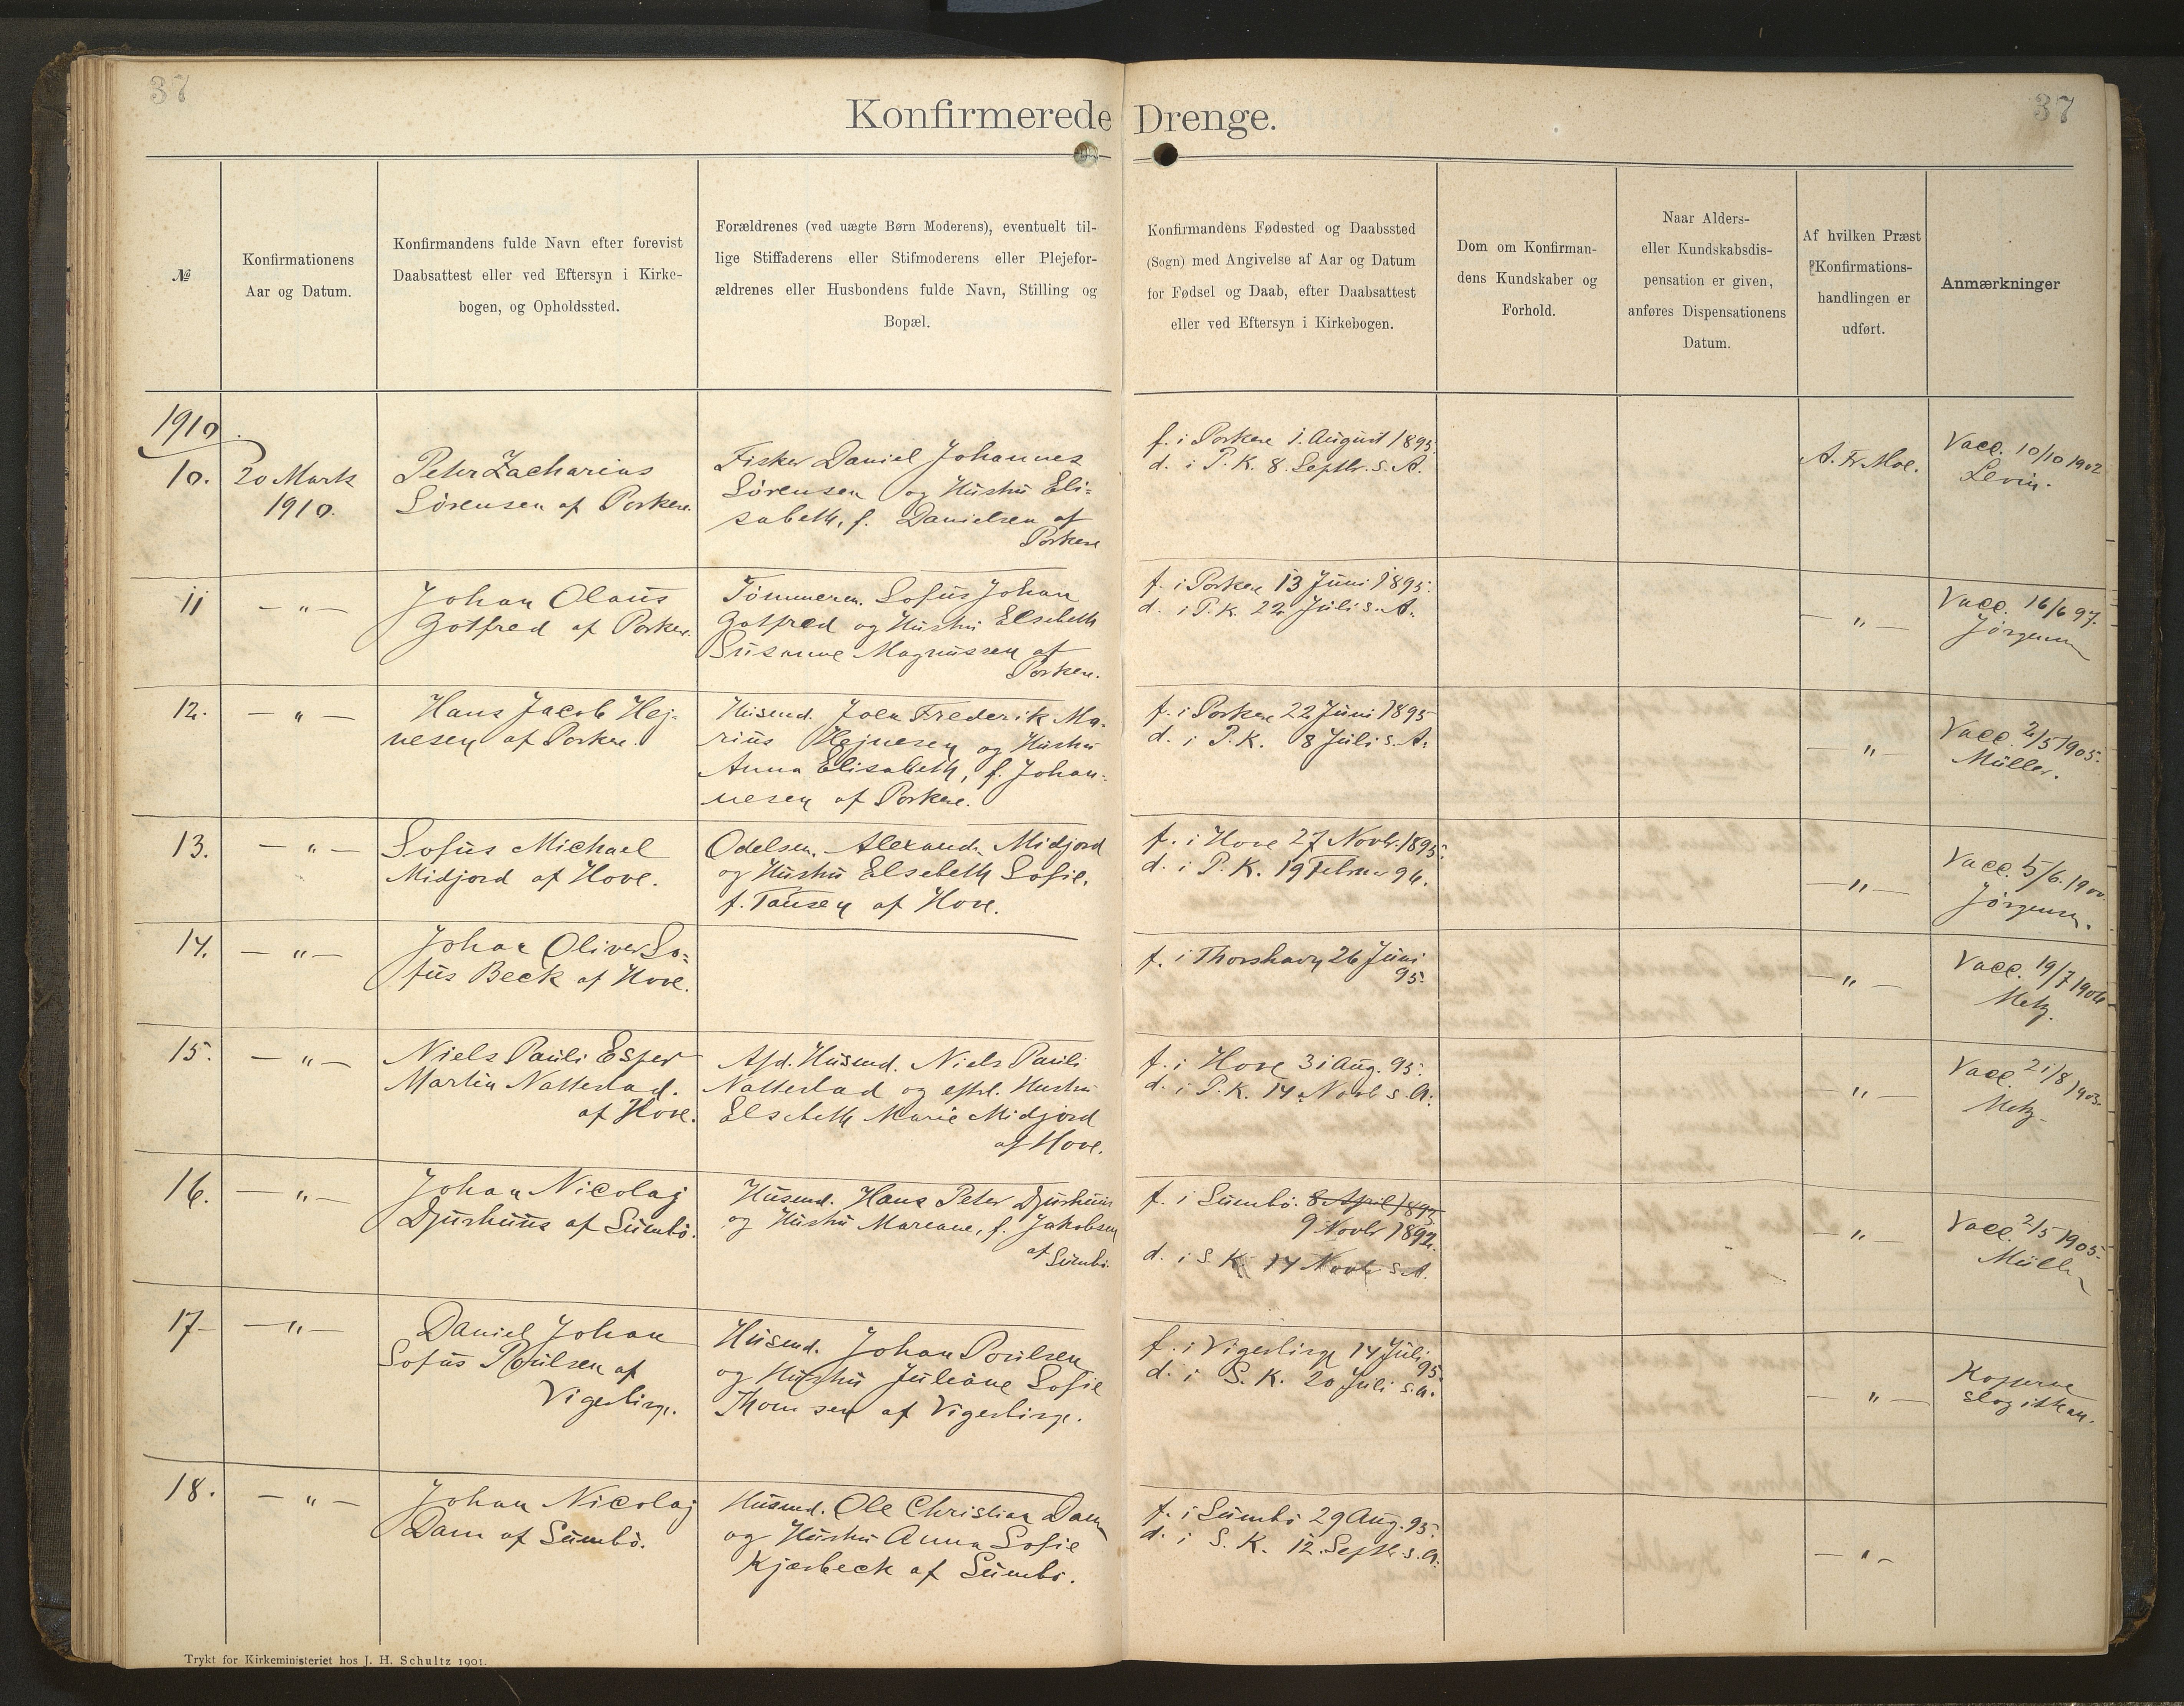 37
37
Konfirmerede Drenge.
№
Konfirmationens
Aar og Datum.
Konfirmandens fulde Navn efter forevist
Daabsattest eller ved Eftersyn i Kirke-
bogen, og Opholdssted.
Forældrenes (ved uægte Børn Moderens), eventuelt til-
lige Stiffaderens eller Stifmoderens eller Plejefor-
ældrenes eller Husbondens fulde Navn, Stilling og
Bopæl.
Konfirmandens Fødested og Daabssted
(Sogn) med Angivelse af Aar og Datum
for Fødsel og Daab, efter Daabsattest
eller ved Eftersyn i Kirkebogen.
Dom om Konfirman-
dens Kundskaber og
Forhold.
Naar Alders-
eller Kundskabsdis-
pensation er given,
anføres Dispensationens
Datum.
Af hvilken Præst
Konfirmations-
handlingen er
udført.
Anmærkninger
1910.
10.
20 Marts
1910.
Peter Zacharias
Sörensen af Porkere.
Fisker Daniel Johannes
Sörensen og Hustru Eli=
sabeth, f. Danielsen af
Porkere
f. i Porkere 1. August 1895.
d. i P. K. 8. Septbr. s. A.
A. Fr. Moe.
Vacc. 10/10 1902
Levin.
11
— " —
Johan Olaus
Gotfred af Porkere.
Tömmerm. Sofus Johan
Gotfred og Hustru Elsebeth
Susanne Magnussen af
Porkere.
f. i Porkere 13 Juni 1895.
d. i P. K. 22. Juli s. A.
— " —
Vacc. 16/6 97.
Jörgensen
12.
— " —
Hans Jacob Hej-
nesen af Porkere.
Husmd. Joen Frederik Ma-
rius Hejnesen og Hustru
Anna Elisabeth, f. Johan-
nesen af Porkere.
f. i Porkere 22 Juni 1895
d. i P. K. 8 Juli s. A.
— " —
Vacc. 2/5 1905.
Müller.
13.
— " —
Sofus Michael
Midjord af Hove.
Odelsm. Alexand. Midjord
og Hustru Elsebeth Sofie,
f. Tausen af Hove.
f. i Hove 27 Novbr. 1895.
d. i P. K. 19 Februar 96.
— " —
Vacc. 5/6. 1900.
Jörgensen.
14.
— " —
Johan Oliver So=
fus Beck af Hove.
f. i Thorshavn 26 Juni
95.
— " —
Vacc. 19/7 1906
Metz.
15.
— " —
Niels Pauli Esper
Martin Nattestad.
af Hove.
Afd. Husmd. Niels Pauli
Nattestad og eftrl. Hustru
Elsebeth Marie Midjord
af Hove.
f. i Hove 31 Aug. 95.
d. i P. K. 14 Novbr s. A.
— " —
Vacc. 21/8 1903.
Metz.
16.
— " —
Johan Nicolaj
Djurhuus af Sumbö.
Husmd. Hans Peter Djurhuus
og Hustru Mariane, f. Jakobsen
af Sumbö.
f. i Sumbö. 8 April 1895
9 Novbr 1892.
d. i S. K. 14 Novbr s. A.
— " —
Vacc. 2/5 1905.
Müller
17
— " —
Daniel Johan
Sofus Poulsen af
Vigerbirge.
Husmd. Johan Poulsen
og Hustru Juliane Sofie
Thomsen af Vigerbirge.
f. i Vigerbirge 14 Juli
95.
d. i S. K. 20 Juli s. A.
— " —
Kopperne
slog ikke an.
18.
— " —
Johan Nicolaj
Dam af Sumbö.
Husmd. Ole Christian Dam
og Hustru Anna Sofie
Kjærbeck af Sumbö.
f. i Sumbö 29 Aug. 95.
d. i S. K. 12. Septbr. s. A.
— " —
Trykt for Kirkeministeriet hos J. H. Schultz 1901.